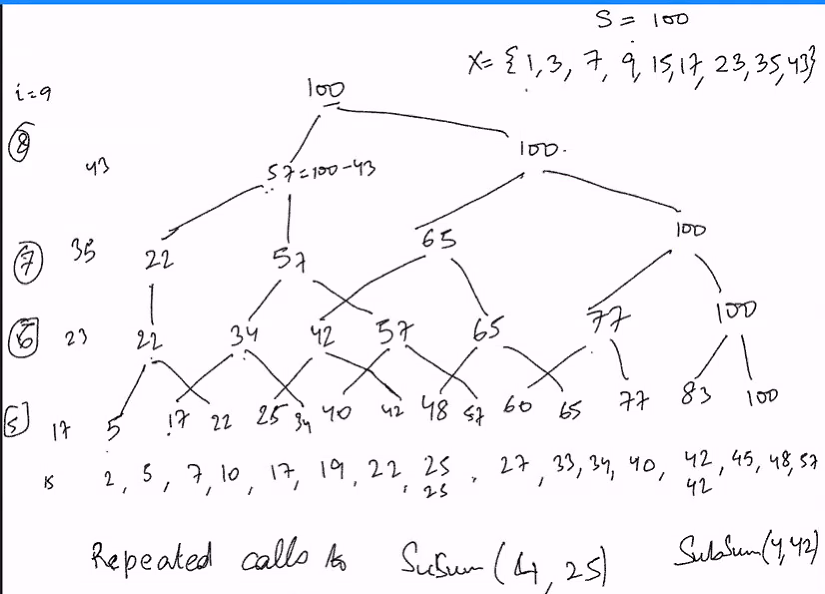 S = 100
X = {1, 3, 7, 9, 15, 17, 23, 35, 43}
i=9 100
8 43 57=100-43 100.
7 35 22 57 65 100
6 23 22 34 42 57 65 77 100
5 17 5 17 22 25 34 40 42 48 57 60 65 77 83 100
15 2, 5, 7, 10, 17, 19, 22, 25, 27, 33, 34, 40, 42, 45, 48, 57
25 42
Repeated calls to SuSum(4, 25) SubSum(4, 42)